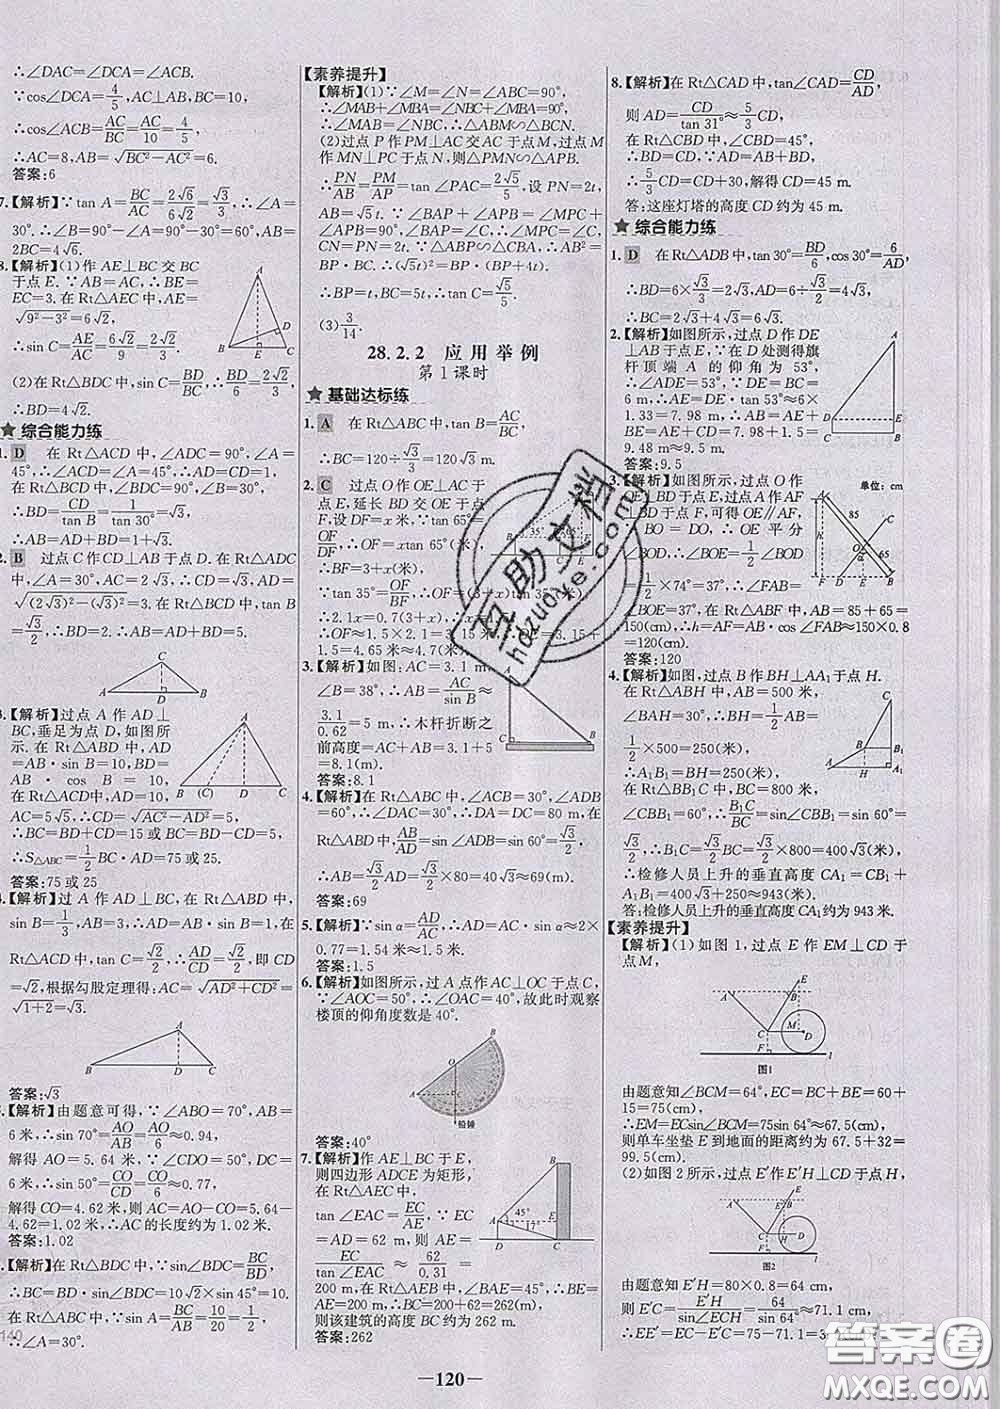 ∴∠DAC=∠DCA=∠ACB.
∵cos∠DCA=4/5,AC⊥AB,BC=10,
∴cos∠ACB=AC/BC=AC/10=4/5,
∴AC=8,AB=√(BC²-AC²)=6.
答案:6
7.【解析】∵tan A=BC/AC=2√6/6√2=√3/3,∴∠A=
30°.∴∠B=90°-∠A=90°-30°=60°,AB=
2BC=4√6.
8.【解析】(1)作AE⊥BC交BC
于点E.∵AB=AC,∴BE=
EC=3.在Rt△AEC中,AE=
√(9²-3²)=6√2,
∴sin C=AE/AC=6√2/9=2√2/3.
(2)在Rt△BDC中,sin C=BD/BC,∴BD/6=2√2/3,
∴BD=4√2.
★综合能力练
1.D 在Rt△ACD中,∠ADC=90°,∠A=
45°,∴∠ACD=∠A=45°,∴AD=CD=1.
在Rt△BCD中,∠BDC=90°,∠B=30°,
∴BD=CD/tan B=1/(√3/3)=√3,
∴AB=AD+BD=1+√3.
2.B 过点C作CD⊥AB于点D.在Rt△ADC
中,∠A=30°,AC=2√3,∴CD=√3,AD=
√((2√3)²-(√3)²)=3.在Rt△BCD中,tan B=
√3/2,∴BD=2.∴AB=AD+BD=5.
A
D
B
3.【解析】过点A作AD⊥
BC,垂足为点D,如图所
示.在Rt△ABD中,AD=
AB·sin B=10,BD=
AB·cos B=10,
在Rt△ACD中,AD=10,
AC=5√5,∴CD=√(AC²-AD²)=5,
∴BC=BD+CD=15或BC=BD-CD=5,
∴S△ABC=1/2 BC·AD=75或25.
答案:75或25
4.【解析】过A作AD⊥BC,在Rt△ABD中,
sin B=1/3,AB=3,∴AD=AB·sin B=1,在
Rt△ACD中,tan C=√2/2,∴AD/CD=√2/2,即CD
=√2,根据勾股定理得:AC=√(AD²+CD²)=
√(1+2)=√3.
A
B
D
C
答案:√3
5.【解析】由题意可得,∵∠ABO=70°,AB=
6米,∴sin 70°=AO/AB=AO/6≈0.94,
解得AO=5.64米,∵∠CDO=50°,DC=
6米,∴sin 50°=CO/CD=CO/6≈0.77,
解得CO=4.62米,则AC=AO-CO=5.64-
4.62=1.02米,∴AC的长度约为1.02米.
答案:1.02
6.【解析】在Rt△BDC中,∵sin∠BDC=BC/BD,
∴BC=BD×sin∠BDC=10√2×sin 45°=10.
在Rt△ABC中,∵sin∠A=BC/AB=10/20=1/2,
∴∠A=30°.
140
【素养提升】
【解析】(1)∵∠M=∠N=∠ABC=90°,
∴∠MAB+∠MBA=∠NBC+∠MBA=90°,
∴∠MAB=∠NBC,∴△ABM∽△BCN.
(2)过点P作PM⊥AC交AC于点M,过点M
作MN⊥PC于点N,则△PMN∽△APB.
∴PN/AB=PM/AP=tan∠PAC=√5/2,设PN=2t,
则AB=√5t.∵∠BAP+∠APB=∠MPC+
∠APB=90°,∴∠BAP=∠MPC=∠C,∴
CN=PN=2t.易得△ABP∽△CBA,∴AB²=
BP·BC.∴(√5t)²=BP·(BP+4t),
∴BP=t,BC=5t,∴tan C=√5/5.
(3)3/14.
28.2.2 应用举例
第1课时
★基础达标练
1.A 在Rt△ABC中,tan B=AC/BC,
∴BC=120÷√3/3=120√3 m.
2.C 过点O作OE⊥AC于
点E,延长BD交OE于点
F,设DF=x米,∵tan 65°=
OF/DF,∴OF=xtan 65°(米).
∴BF=3+x(米).∵
tan 35°=OF/BF,∴OF=(3+x)tan 35°(米),
∴2.1x=0.7(3+x),∴x=1.5米,
∴OF≈1.5×2.1=3.15米,∴OE≈3.15+
1.5=4.65米≈4.7(米).
3.【解析】如图:AC=3.1 m,
∠B=38°,∴AB=AC/sin B≈
3.1/0.62=5 m,∴木杆折断之
前高度=AC+AB=3.1+5
=8.1(m).
答案:8.1
4.【解析】在Rt△ABC中,∠ACB=30°,∠ADB
=60°,∴∠DAC=30°,∴DA=DC=80 m,在
Rt△ABD中,AB/AD=sin∠ADB=sin 60°=√3/2,
∴AB=√3/2 AD=√3/2×80=40√3≈69(m).
答案:69
5.【解析】∵sin α=AD/AC,∴AD=AC·sin α≈2×
0.77=1.54米≈1.5米.
答案:1.5
6.【解析】如图所示,过A点作AC⊥OC于点C,
∵∠AOC=50°,∴∠OAC=40°,故此时观察
楼顶的仰角度数是40°.
铅锤
答案:40°
7.【解析】作AE⊥BC于E,
则四边形ADCE为矩形,
在Rt△AEC中,
tan∠EAC=EC/AE,∵EC
=AD=62 m,∴AE=
EC/tan∠EAC≈62/0.31=
200 m,在Rt△AEB中,∠BAE=45°,∴BE=
AE=200 m,∴BC=200+62=262(m),
则该建筑的高度BC约为262 m.
答案:262
8.【解析】在Rt△CAD中,tan∠CAD=CD/AD,
则AD=CD/tan 31°≈5/3CD,
在Rt△CBD中,∠CBD=45°,
∴BD=CD,∵AD=AB+BD,
∴5/3CD=CD+30,解得CD=45 m.
答:这座灯塔的高度CD约为45 m.
★综合能力练
1.D 在Rt△ADB中,tan30°=BD/6,cos30°=6/AD,
∴BD=6×√3/3=2√3,AD=6÷√3/2=4√3,
∴BC=2√3+4√3=6√3.
2.【解析】如图所示,过点D作DE
⊥AB于点E,∵在D处测得
旗杆顶端A的仰角为53°,
∴∠ADE=53°,∵BC=DE=
6 m,∴AE=DE·tan 53°≈6×
1.33=7.98 m,∴AB=AE+
BE=AE+CD=7.98+1.5=
9.48 m≈9.5 m.
答案:9.5
3.【解析】如图所示,过点O作
OE⊥BD,过点A作AF⊥
BD于点F,可得OE∥AF,
∵BO=DO,∴OE平分
∠BOD,∴∠BOE=1/2∠BOD
=1/2×74°=37°,∴∠BAF=
∠BOE=37°,在Rt△ABF中,AB=85+65=
150(cm),∴h=AF=AB·cos∠BAF≈150×0.8
=120(cm)
答案:120
单位:cm
85
65
4.【解析】如图,过点B作BH⊥AA₁于点H.
在Rt△ABH中,AB=500米,
∠BAH=30°,∴BH=1/2AB=
1/2×500=250(米),
∴A₁B₁=BH=250(米),
在Rt△BB₁C中,BC=800米,
∠CBB₁=60°,∴B₁C/BC=sin∠CBB₁=sin 60°=
√3/2,∴B₁C=√3/2BC=√3/2×800=400√3(米),
∴检修人员上升的垂直高度CA₁=CB₁+
A₁B₁=400√3+250≈943(米).
答:检修人员上升的垂直高度CA₁约为943米.
【素养提升】
【解析】(1)如图1,过点E作EM⊥CD于
点M,
图1
由题意知∠BCM=64°,EC=BC+BE=60+
15=75(cm),
∴EM=ECsin∠BCM=75sin 64°≈67.5(cm),
则单车坐垫E到地面的距离约为67.5+32=
99.5(cm).
(2)如图2所示,过点E′作E′H⊥CD于点H,
图2
由题意知E′H=80×0.8=64 cm,
则E′C=E′H/sin∠ECH=64/sin 64°≈71.1 cm,
∴EE′=CE-CE′=75-71.1=3.
—120—
互助文档
hdzuoye.com
答案圈
MXQE.COM